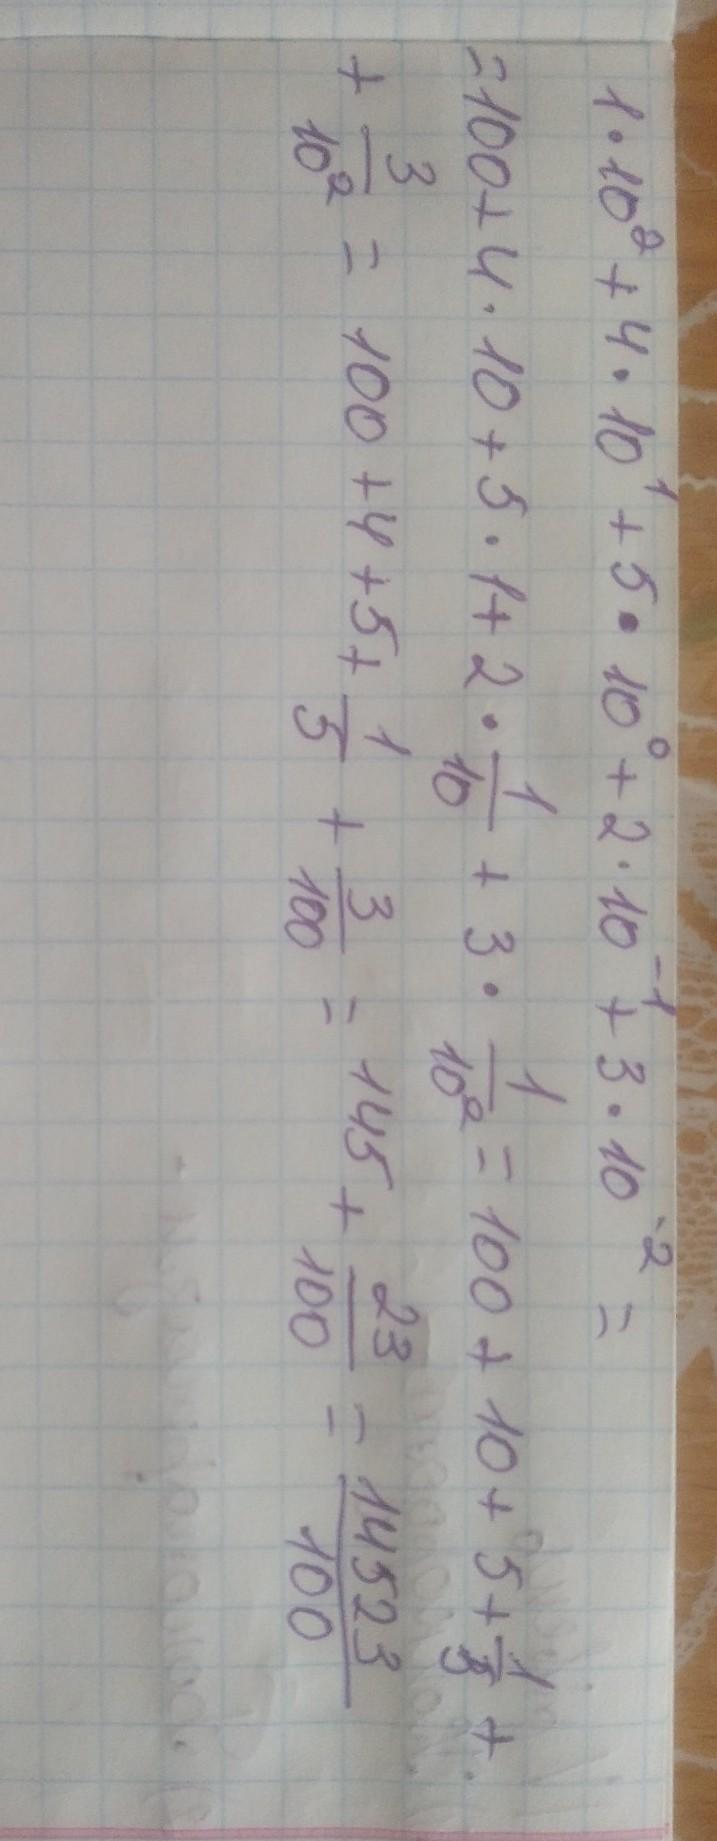 1·10² + 4·10¹ + 5·10⁰ + 2·10⁻¹ + 3·10⁻² =
= 100 + 4·10 + 5·1 + 2·1/10 + 3·1/10² = 100 + 10 + 5 + 1/5 +
+ 3/10² = 100 + 4 + 5 + 1/5 + 3/100 = 145 + 23/100 = 14523/100